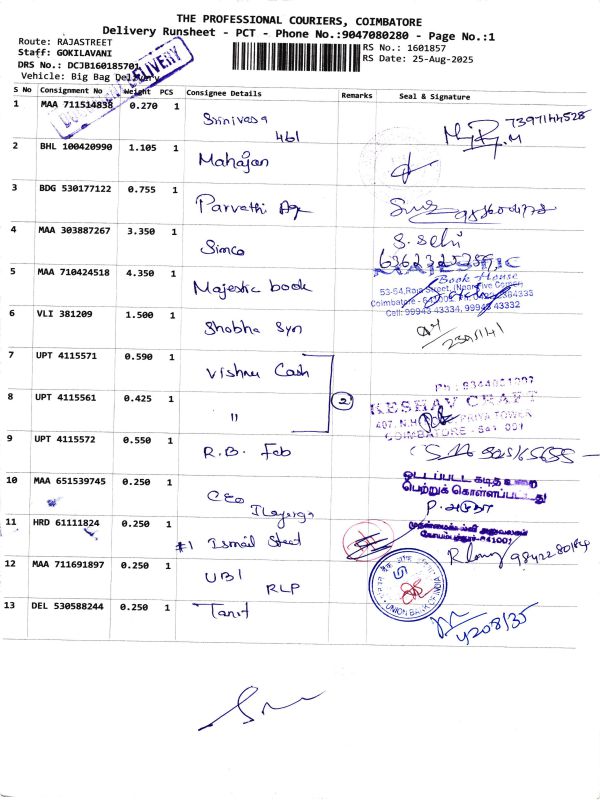 THE PROFESSIONAL COURIERS, COIMBATORE
Delivery Runsheet - PCT - Phone No.:9047080280 - Page No.:1
Route: RAJASTREET
RS No.: 1601857
Staff: GOKILAVANI
RS Date: 25-Aug-2025
DRS No.: DCJB160185701
Vehicle: Big Bag Delivery
DELIVERY
S No Consignment No Weight PCS Consignee Details Remarks Seal & Signature
1 MAA 711514838 0.270 1 Srinivasa 461 7397144528
2 BHL 100420990 1.105 1 Mahajan
3 BDG 530177122 0.755 1 Parvathi Ag
4 MAA 303887267 3.350 1 Simco S. Selvi
5 MAA 710424518 4.350 1 Majestic book
MAJESTIC
Book House
53-54, Raja Street,
Coimbatore - 641001
Cell: 99943 43334, 99943 43332
6 VLI 381209 1.500 1 Shobha Syn
7 UPT 4115571 0.590 1 Vishnu Cash
8 UPT 4115561 0.425 1 " 2
KESHAV CRAFT
COIMBATORE - 641 001
9 UPT 4115572 0.550 1 R.B. Fab
10 MAA 651539745 0.250 1 CEO
ஒட்டப்பட்ட கடித உறை
பெற்றுக் கொள்ளப்பட்டது
முதன்மைக்கல்வி அலுவலகம்
கோயம்புத்தூர்-641001
11 HRD 61111824 0.250 1 #1 Ismail Street
12 MAA 711691897 0.250 1 UBI RLP
UNION BANK OF INDIA
13 DEL 530588244 0.250 1 Tanit